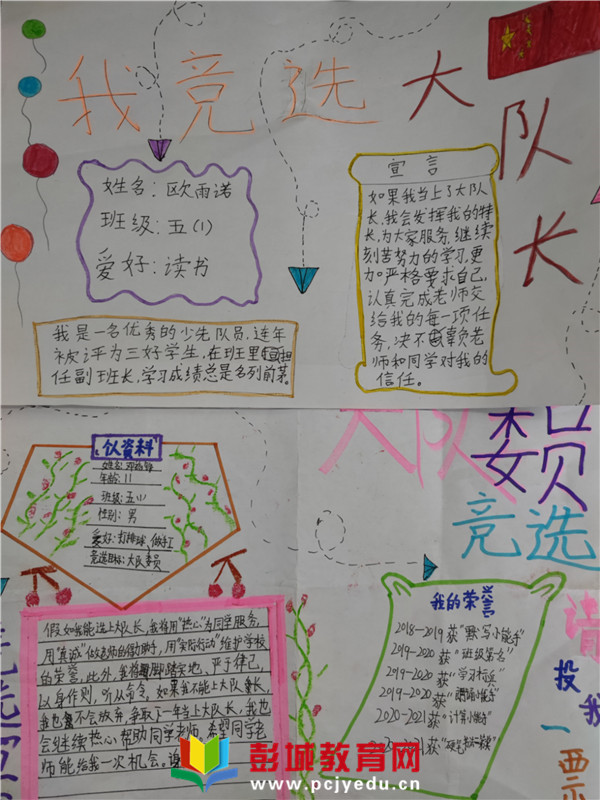 我竞选大队长
姓名：欧雨诺
班级：五(1)
爱好：读书
宣言
如果我当上了大队
长，我会发挥我的特
长，为大家服务，继续
刻苦努力的学习，更
加严格要求自己，
认真完成老师交
给我的每一项任
务，决不辜负老
师和同学对我的
信任。
我是一名优秀的少先队员，连年
被评为三好学生，在班里担
任副班长，学习成绩总是名列前茅。
大队委员
竞选
请投我一票
个人资料
姓名：
年龄：11
班级：五(1)
性别：男
爱好：打排球、做手工
竞选目标：大队委员
假如我能选上大队长，我将用"热心"为同学服务，
用"真诚"做老师的得力助手，用"实际行动"维护学校
的荣誉，此外，我将脚踏实地、严于律己，
以身作则，听从命令，如果我不能上大队长，我
也不会放弃，争取下一年当上大队长，我也
会继续热心帮助同学老师。希望同学老
师能给我一次机会。谢
我的荣誉
2018-2019获"默写小能手"
2019-2020获"班级第一名"
2019-2020获"学习标兵"
2019-2020获"小能手"
2020-2021获"计算小能手"
2020-2021获
彭城教育网
www.pcjyedu.cn